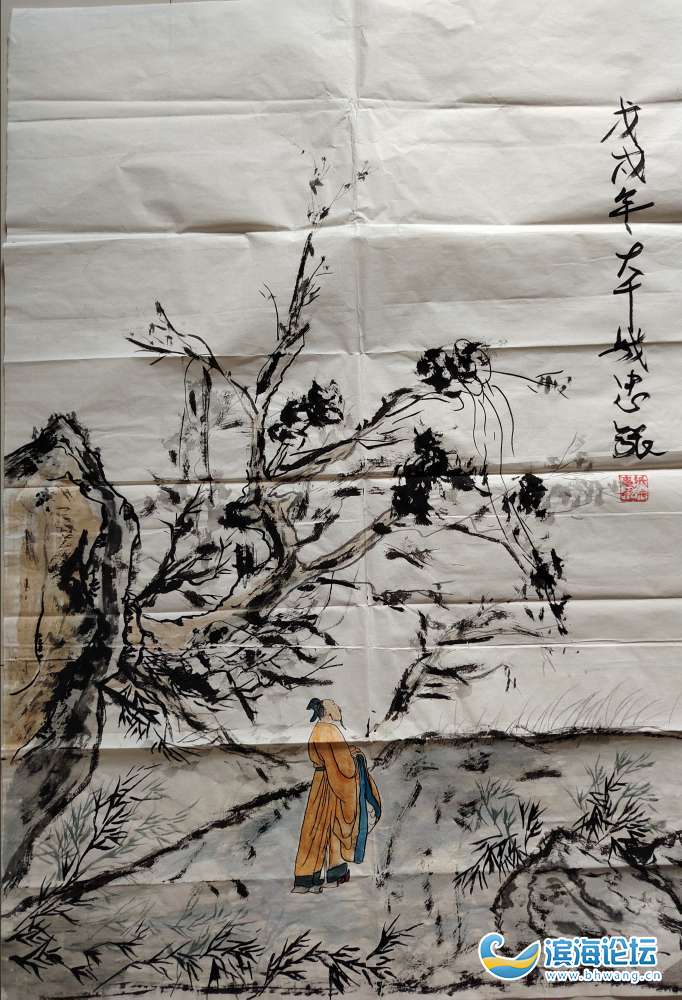 戊戌年大千城忠张
滨海论坛
www.bhwang.cn